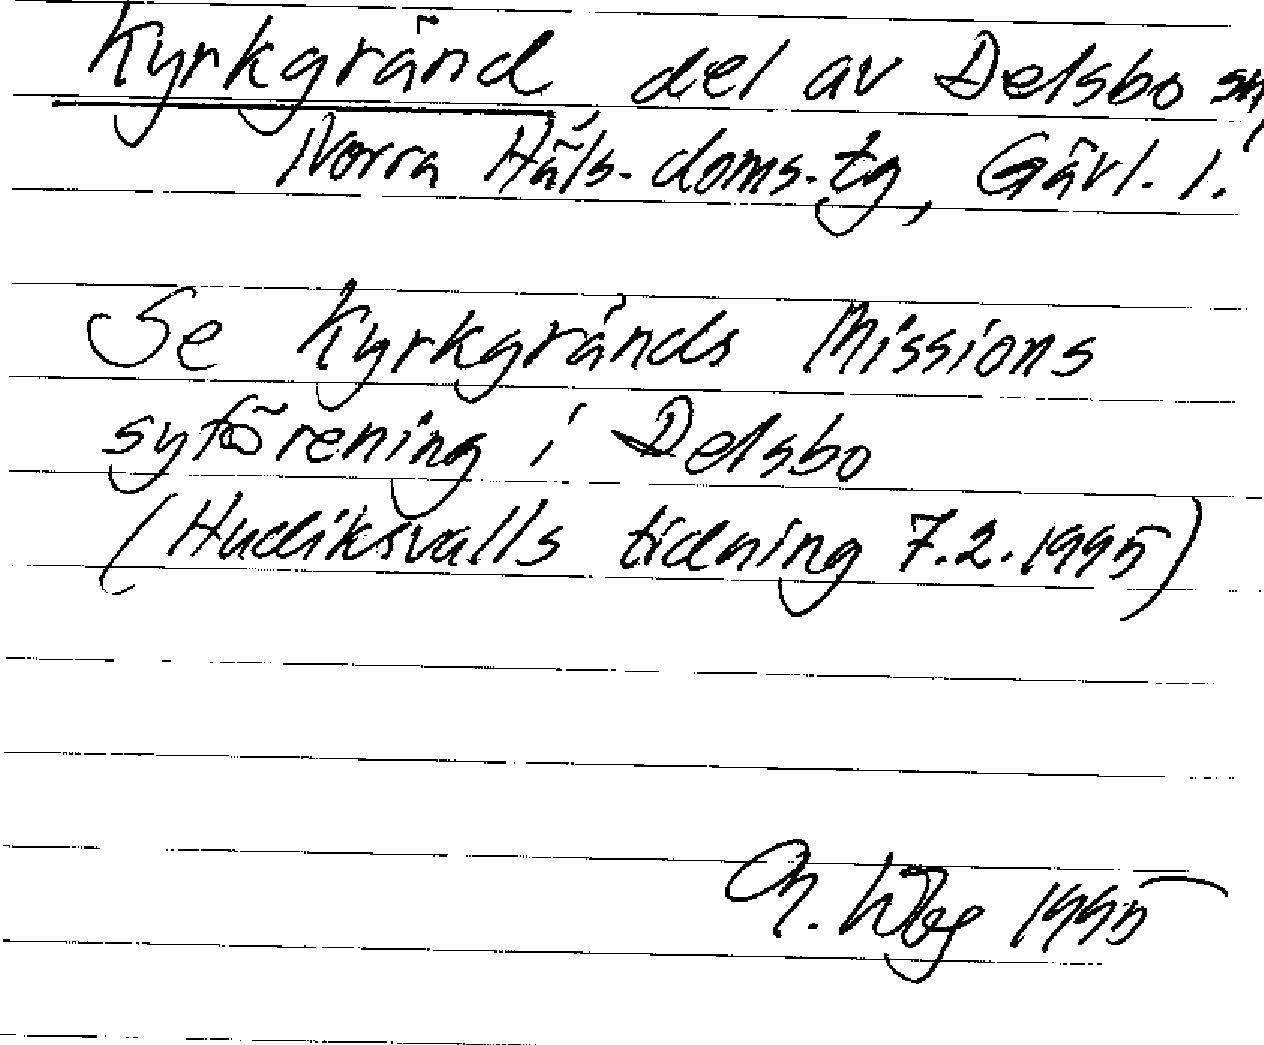 Kyrkgränd, del av Delsbo sn,
Norra Häls. doms. tg, Gävl. l.
Se Kyrkgränds Missions
syförening i Delsbo
(Hudiksvalls tidning 7.2.1995)
1995